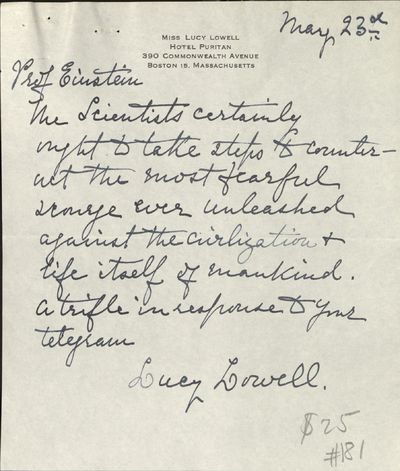 May 23rd
Miss Lucy Lowell
Hotel Puritan
390 Commonwealth Avenue
Boston 15, Massachusetts
Prof Einstein
The Scientists certainly
ought to take steps to counter-
act the most fearful
scourge ever unleashed
against the civilization &
life itself of mankind.
A trifle in response to your
telegram
Lucy Lowell.
$25
#181